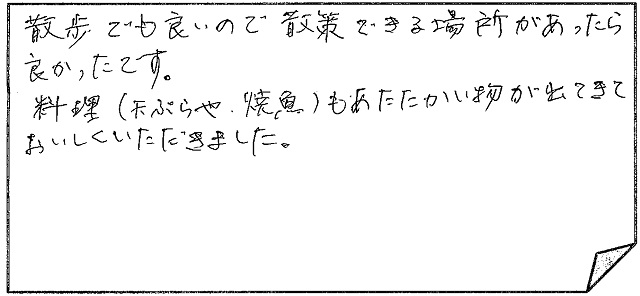 散歩でも良いので散策できる場所があったら
良かったです。
料理（天ぷらや、焼魚）もあたたかい物が出てきて
おいしくいただきました。